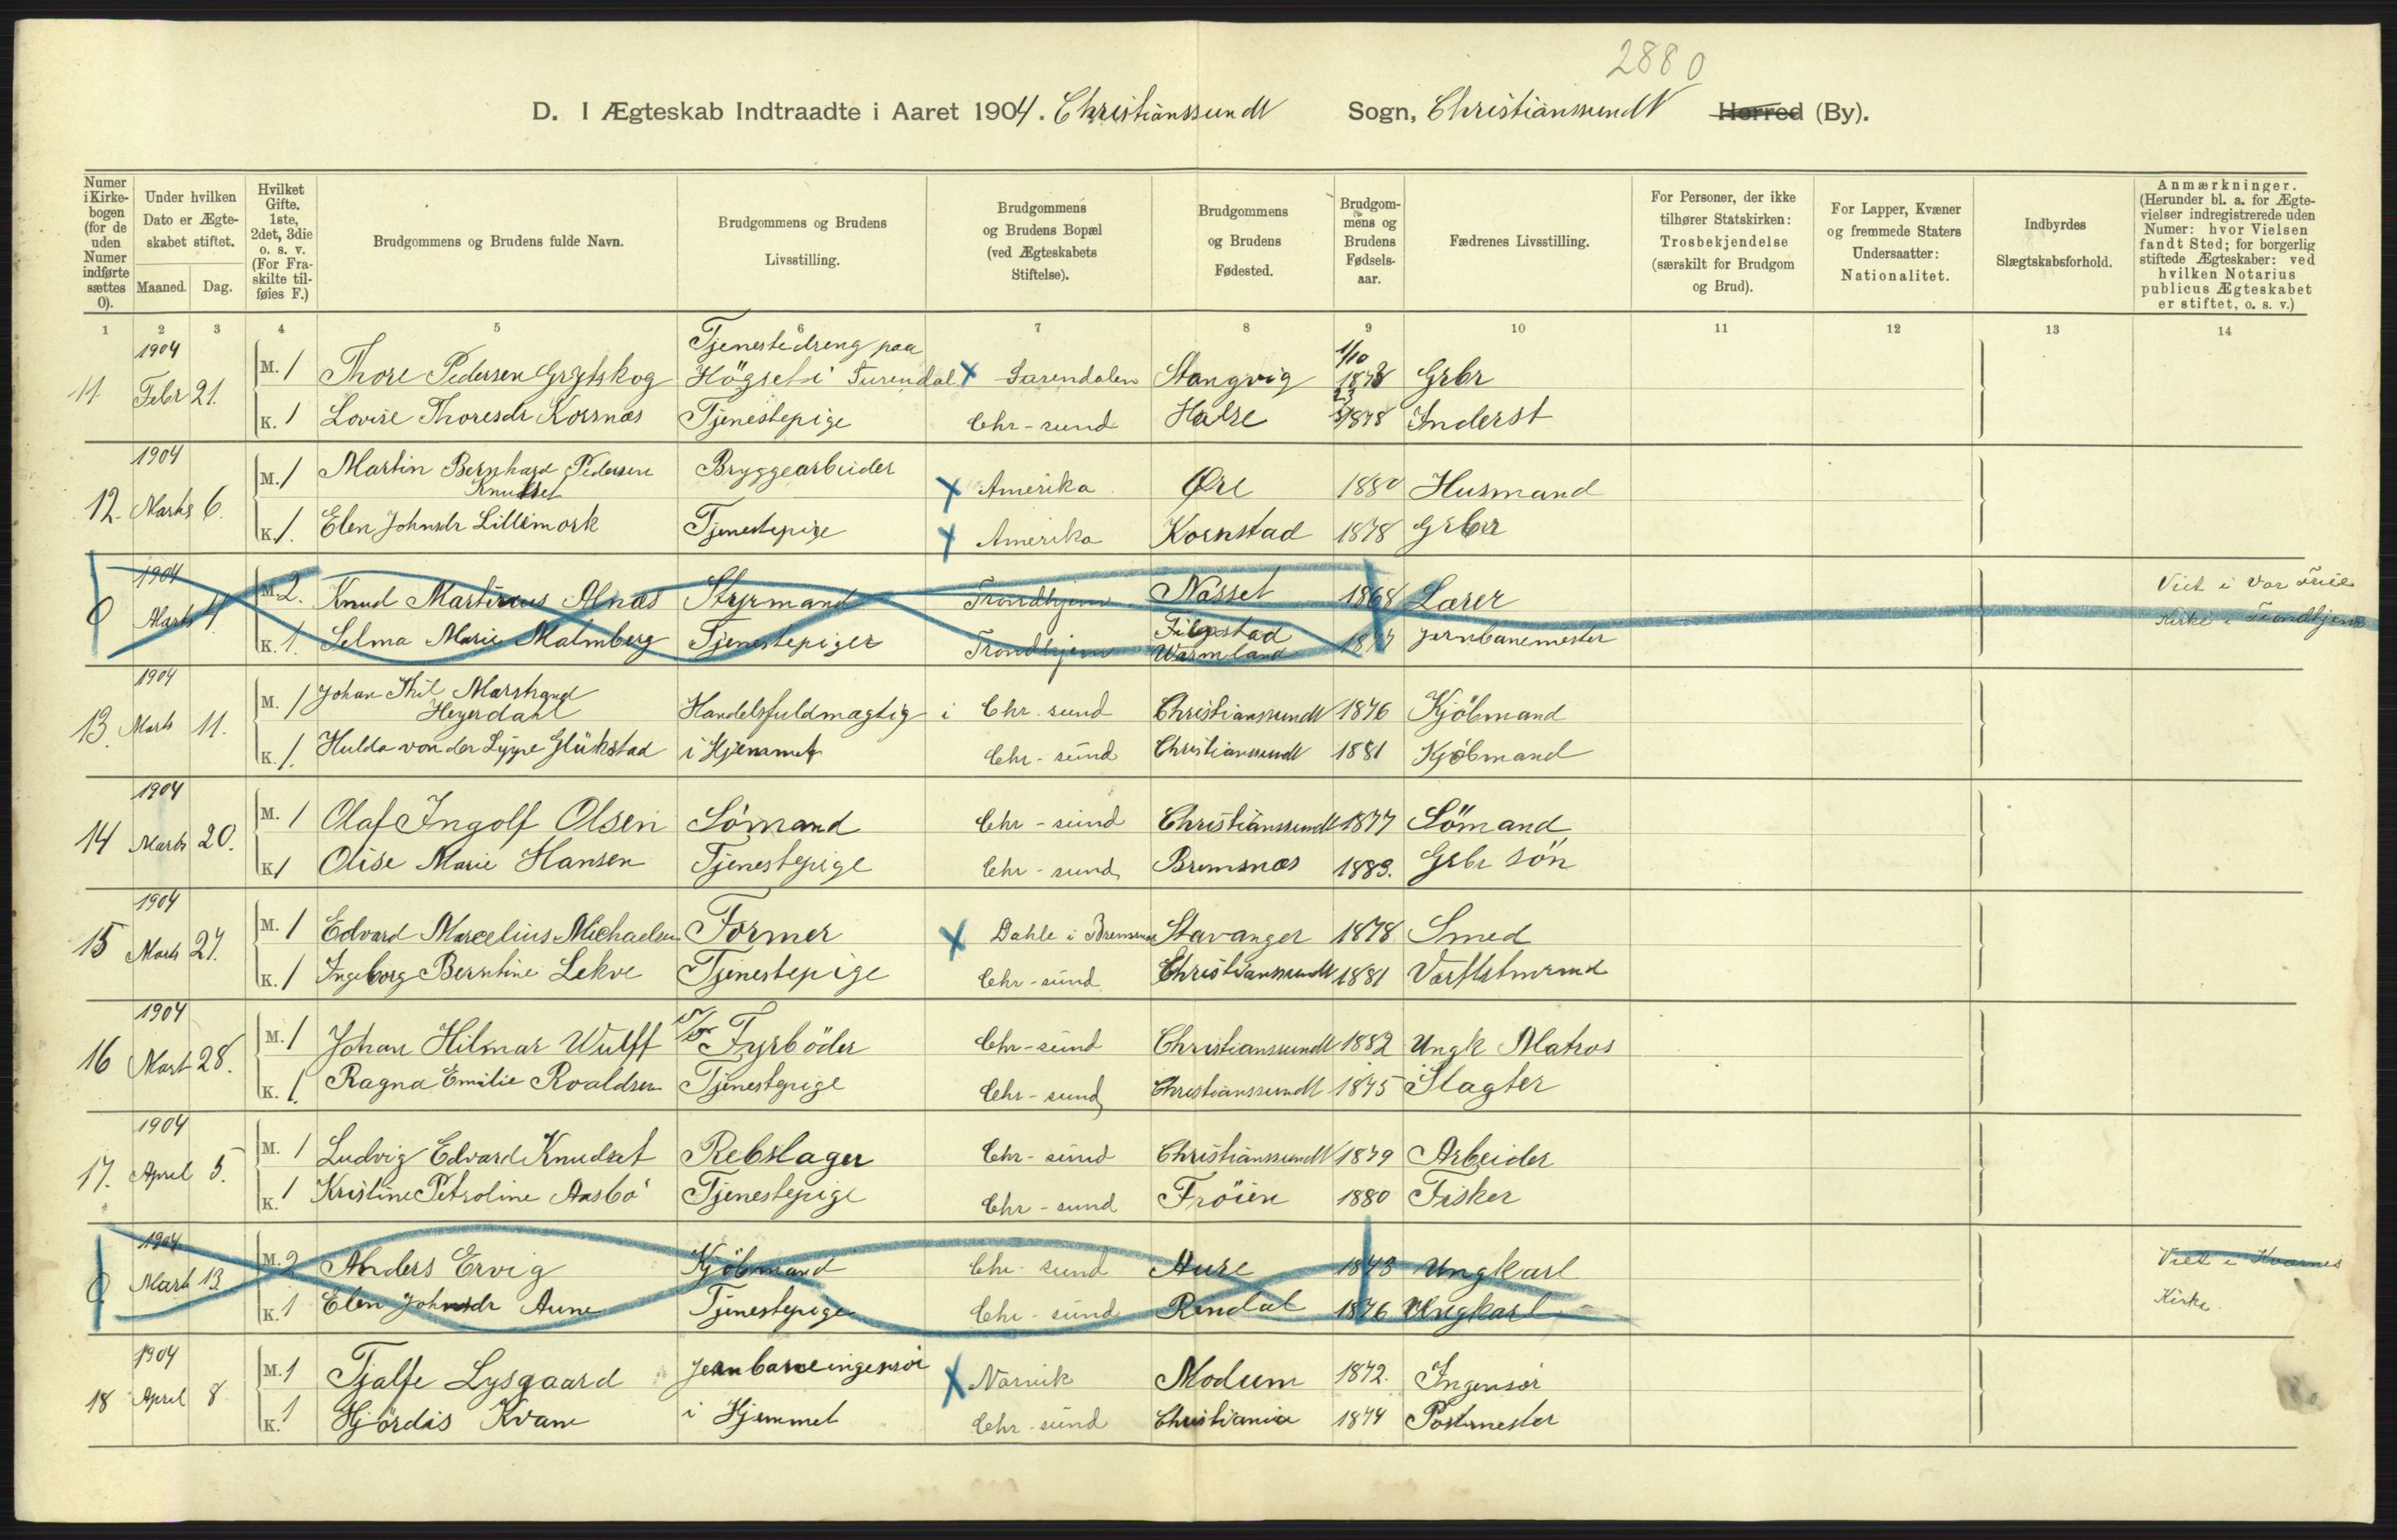 2880
D. I Ægteskab Indtraadte i Aaret 1904. Christianssundt Sogn, Christianssundt Herred (By).
Numer i Kirkebogen (for de uden Numer indførte sættes 0).
Under hvilken Dato er Ægteskabet stiftet.
Maaned. Dag.
Hvilket Gifte. 1ste, 2det, 3die o. s. v. (For Fraskilte tilføies F.)
Brudgommens og Brudens fulde Navn.
Brudgommens og Brudens Livsstilling.
Brudgommens og Brudens Bopæl (ved Ægteskabets Stiftelse).
Brudgommens og Brudens Fødested.
Brudgommens og Brudens Fødselsaar.
Fædrenes Livsstilling.
For Personer, der ikke tilhører Statskirken: Trosbekjendelse (særskilt for Brudgom og Brud).
For Lapper, Kvæner og fremmede Staters Undersaatter: Nationalitet.
Indbyrdes Slægtskabsforhold.
Anmærkninger. (Herunder bl. a. for Ægtevielser indregistrerede uden Numer: hvor Vielsen fandt Sted; for borgerlig stiftede Ægteskaber: ved hvilken Notarius publicus Ægteskabet er stiftet, o. s. v.)
1 2 3 4 5 6 7 8 9 10 11 12 13 14
1904 Tjenestedreng paa 1/10
11 Febr 21. M. 1 Thore Pedersen Grytskog Högset i Surendal X Surendalen Stangvig 1873 Grbr
K. 1 Lovise Thoresdr Korsnæs Tjenestepige Chr-sund Halse 1878 Inderst
1904
12. Marts 6. M. 1 Martin Bernhard Pedersen Knudset Bryggearbeider X Amerika Øre 1880 Husmand
K. 1. Elen Johnsdr Lillemork Tjenestepige X Amerika Kornstad 1878 Grbr
1904
0 Marts 4. M. 2. Knud Martinus Alnæs Styrmand Trondhjem Næsset 1868 Lærer Viet i Vor Frue
K. 1. Selma Marie Malmberg Tjenestepiger Trondhjem Filipstad Warmland 1877 Jernbanemester Kirke i Trondhjem
1904
13. Marts 11. M. 1 Johan Thil Marstrand Heyerdahl Handelsfuldmægtig i Chr. sund Christianssundt 1876 Kjöbmand
K. 1. Hulda von der Lippe Glükstad i Hjemmet Chr-sund Christianssundt 1881 Kjöbmand
1904
14 Marts 20. M. 1 Olaf Ingolf Olsen Sömand Chr-sund Christianssundt 1877 Sömand
K 1 Olise Marie Hansen Tjenestepige Chr-sund Bremsnæs 1883. Grbr sön
1904
15 Marts 27. M. 1 Edvard Marcelius Michaelsen Former X Dahle i Bremsnæs Stavanger 1878 Smed
K. 1 Ingeborg Berntine Lekve Tjenestepige Chr-sund Christianssundt 1881
1904
16 Mart 28. M. 1 Johan Hilmar Wulff Fyrböder Chr-sund Christianssundt 1882 Ungk Matros
K. 1. Ragna Emilie Roaldsen Tjenestepige Chr-sund Christianssundt 1875 Slagter
1904
17. April 5. M. 1 Ludvig Edvard Knudset Rebslager Chr-sund Christianssundt 1879 Arbeider
K. 1 Kristine Petroline Aasbö Tjenestepige Chr-sund Fröien 1880 Fisker
1904
0 Mart 13. M. 2 Anders Ervig Kjöbmand Chr-sund Aure 1843 Ungkarl Viet i Kvernes
K. 1 Elen Johnsdr Aune Tjenestepige Chr-sund Rindal 1876 Ungkarl Kirke.
1904
18 April 8 M. 1 Tjalfe Lysgaard Jernbaneingeniör X Narvik Modum 1872. Ingeniör
K. 1 Hjördis Kvam i Hjemmet Chr-sund Christiania 1874 Postmester